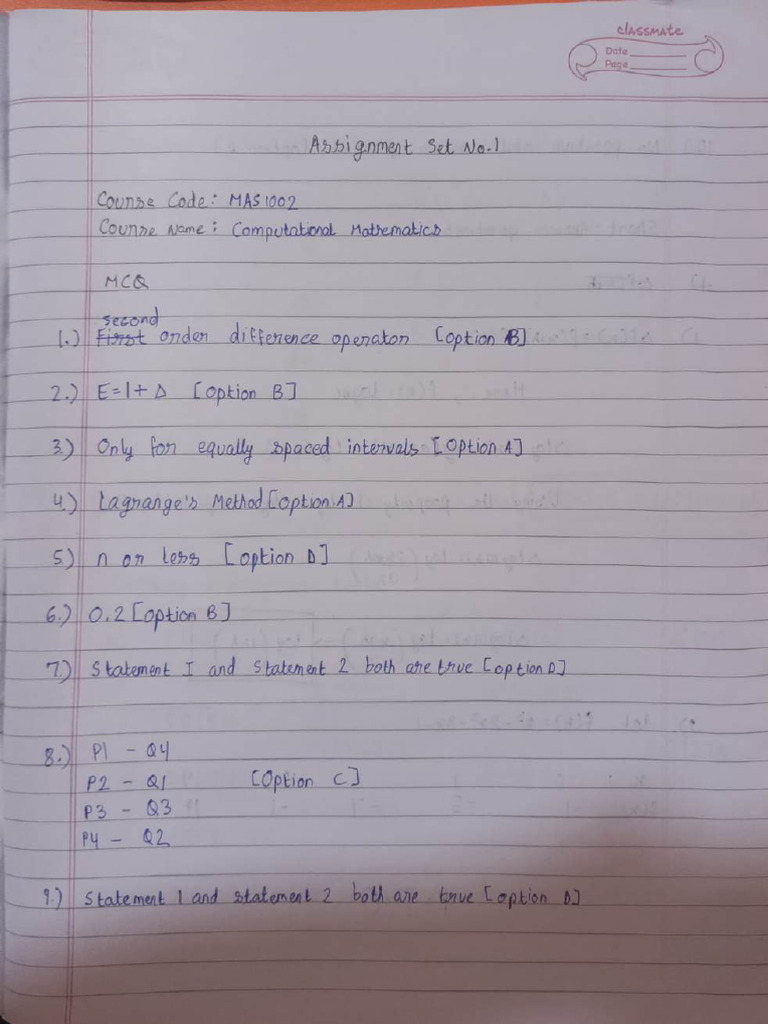 classmate
Date
Page
Assignment Set No.1
Course Code: MAS1002
Course Name: Computational Mathematics
MCQ
second
1.) First order difference operator [option B]
2.) E=1+Δ [option B]
3.) Only for equally spaced intervals [option A]
4.) Lagrange's Method [option A]
5.) n or less [option D]
6.) 0.2 [option B]
7.) Statement I and Statement 2 both are true [option D]
8.) P1 - Q4
P2 - Q1 [option C]
P3 - Q3
P4 - Q2
9.) Statement 1 and statement 2 both are true [option D]